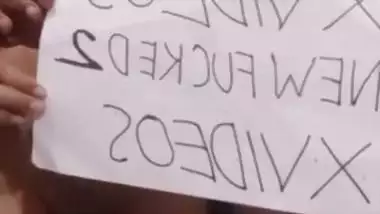 X VIDEOS
NEWFUCKED2
XVIDEOS